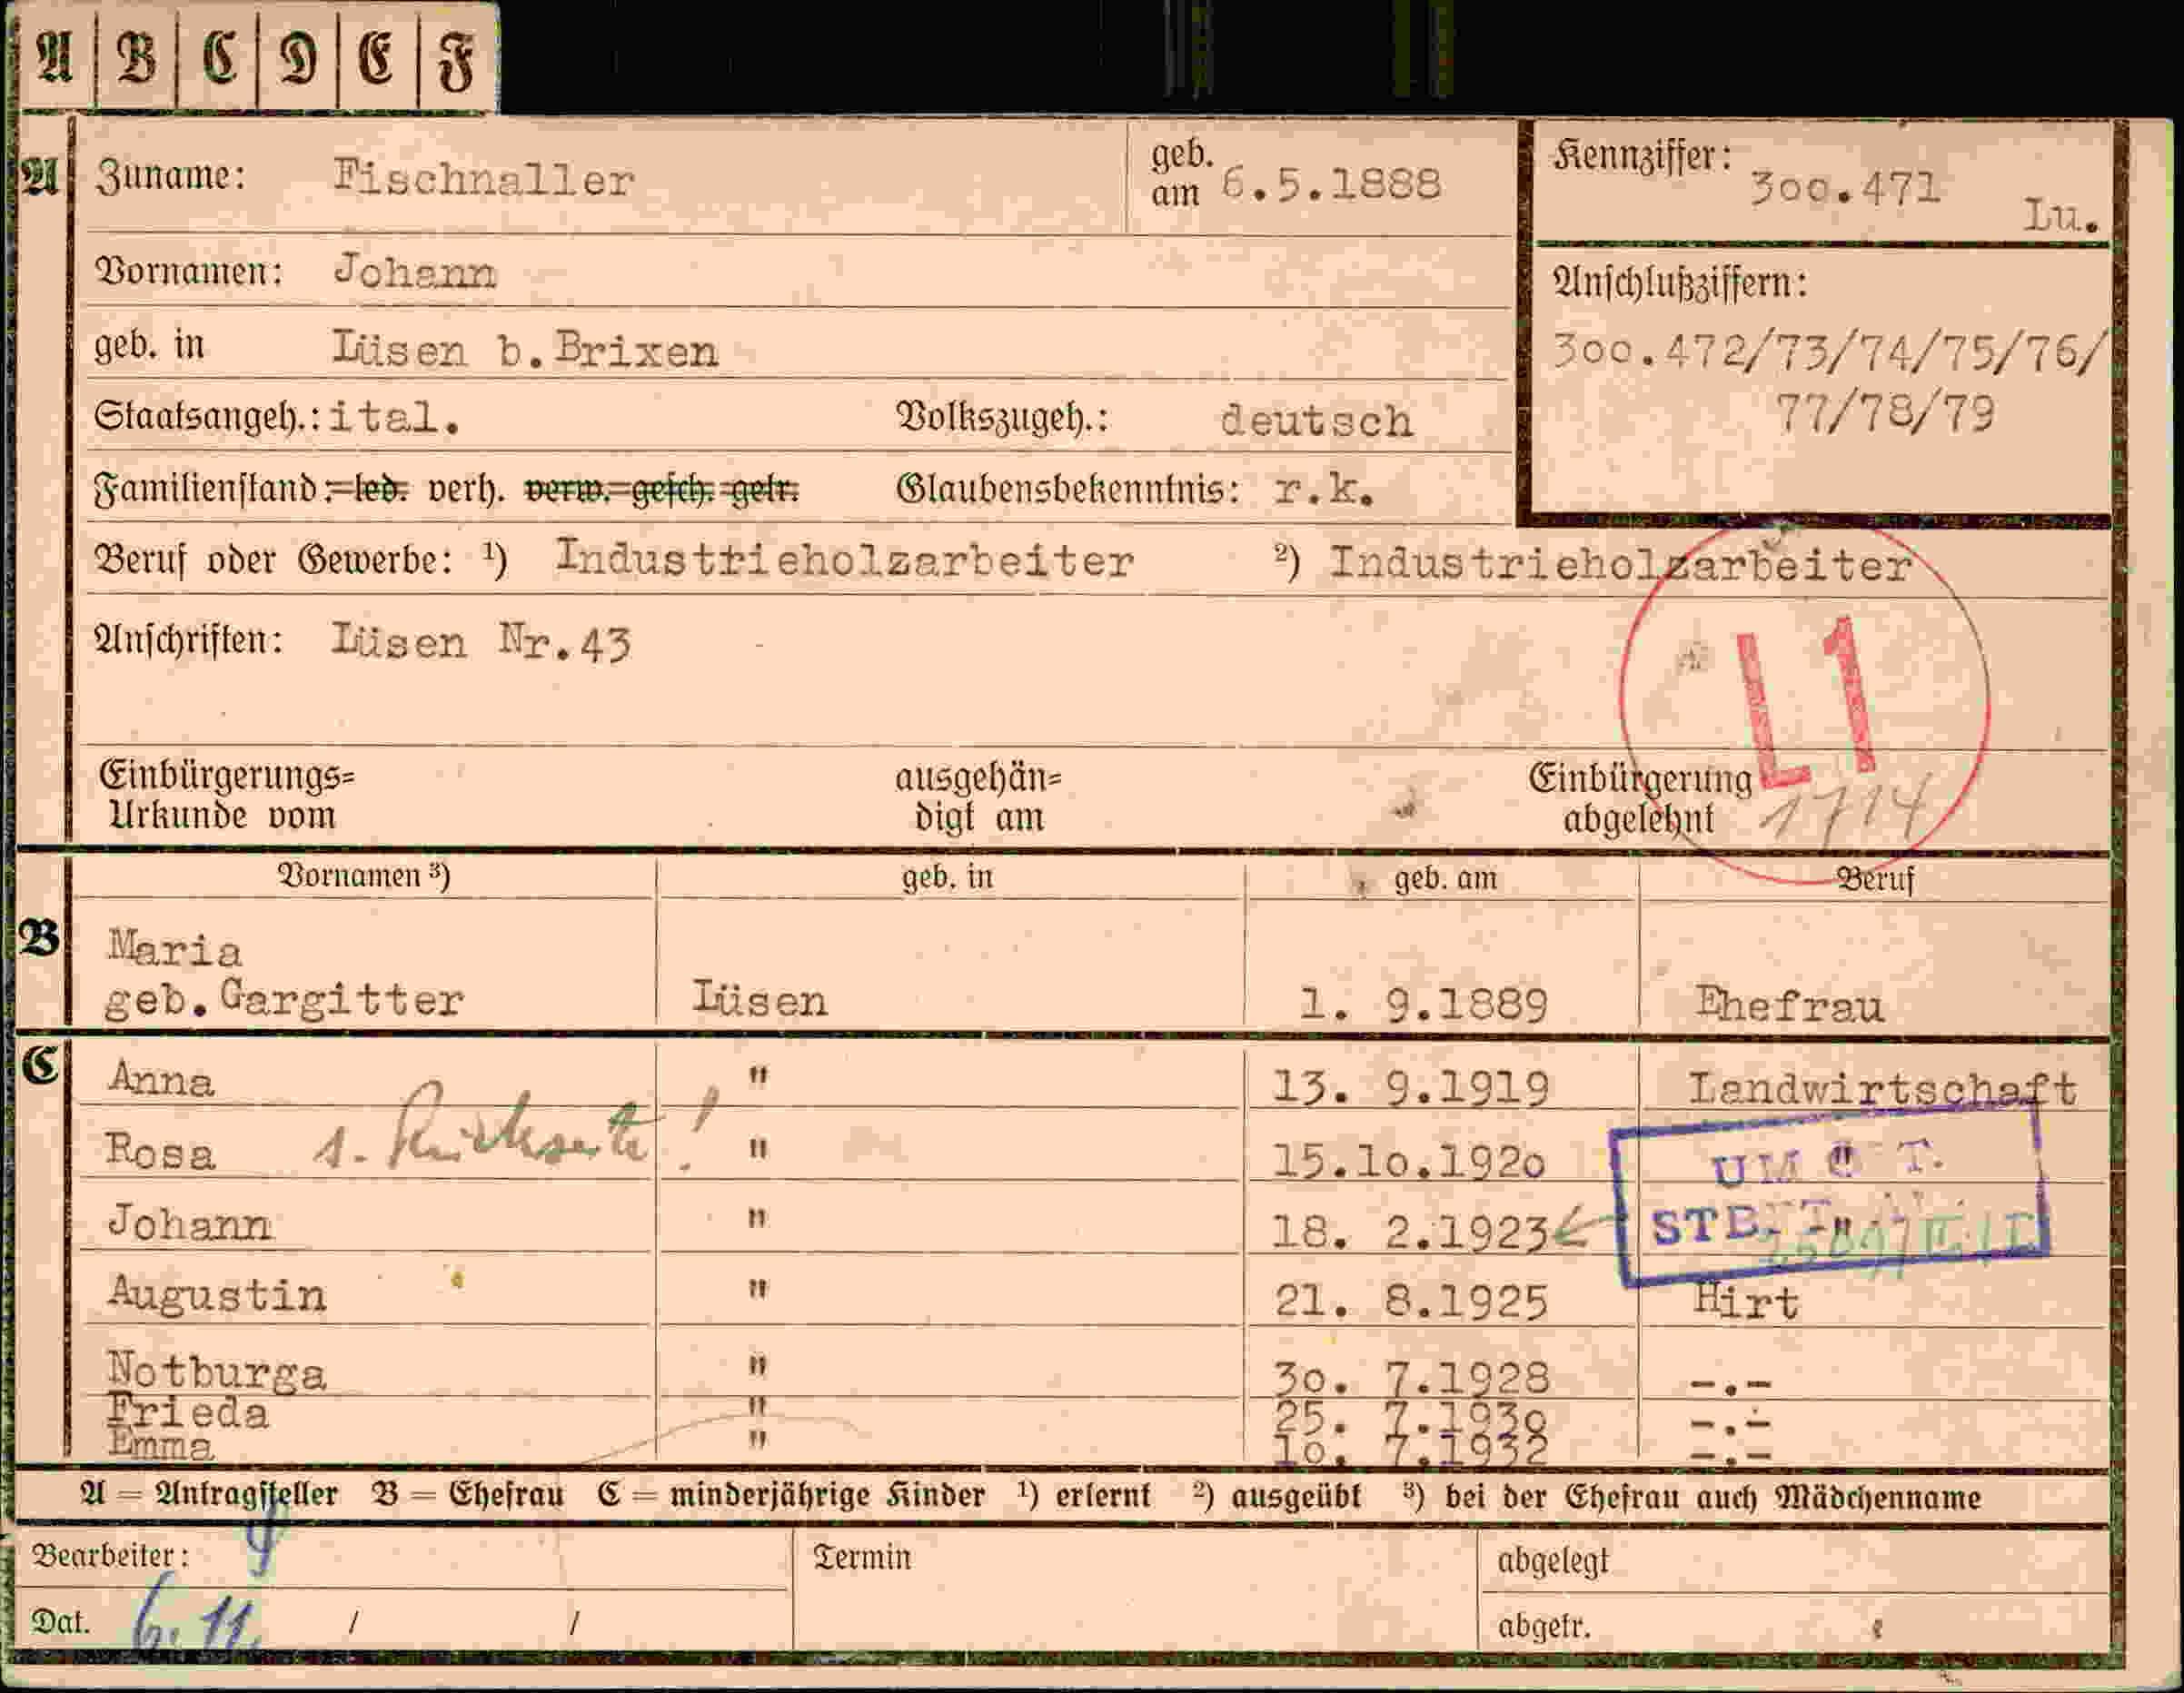 A B C D E F
A Zuname: Fischnaller geb. am 6.5.1888 Kennziffer: 3oo.471 Lu.
Vornamen: Johann
Anschlußziffern:
geb. in Lüsen b.Brixen 3oo.472/73/74/75/76/
Staatsangeh.: ital. Volkszugeh.: deutsch 77/78/79
Familienstand: led. verh. verw. gesch. getr. Glaubensbekenntnis: r.k.
Beruf oder Gewerbe: ¹) Industrieholzarbeiter ²) Industrieholzarbeiter
Anschriften: Lüsen Nr.43
L1
Einbürgerungs= ausgehän= Einbürgerung
Urkunde vom digt am abgelehnt 1714
Vornamen ³) geb. in geb. am Beruf
B Maria
geb.Gargitter Lüsen 1. 9.1889 Ehefrau
C Anna " 13. 9.1919 Landwirtschaft
s. Rückseite!
Rosa " 15.1o.192o "
Johann " 18. 2.1923 "
Augustin " 21. 8.1925 Hirt
Notburga " 3o. 7.1928 -.-
Frieda " 25. 7.193o -.-
Emma " 1o. 7.1932 -.-
A = Antragsteller B = Ehefrau C = minderjährige Kinder ¹) erlernt ²) ausgeübt ³) bei der Ehefrau auch Mädchenname
Bearbeiter: Termin abgelegt
Dat. 6. 11. / / abgetr.